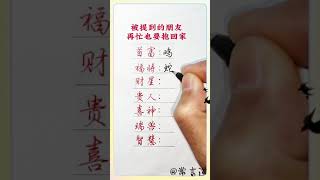 被提到的朋友
再忙也要抱回家
首富：鸡
福将：蛇
财星：
贵人：
喜神：
瑞兽：
智慧：
福
财
贵
喜
@常言